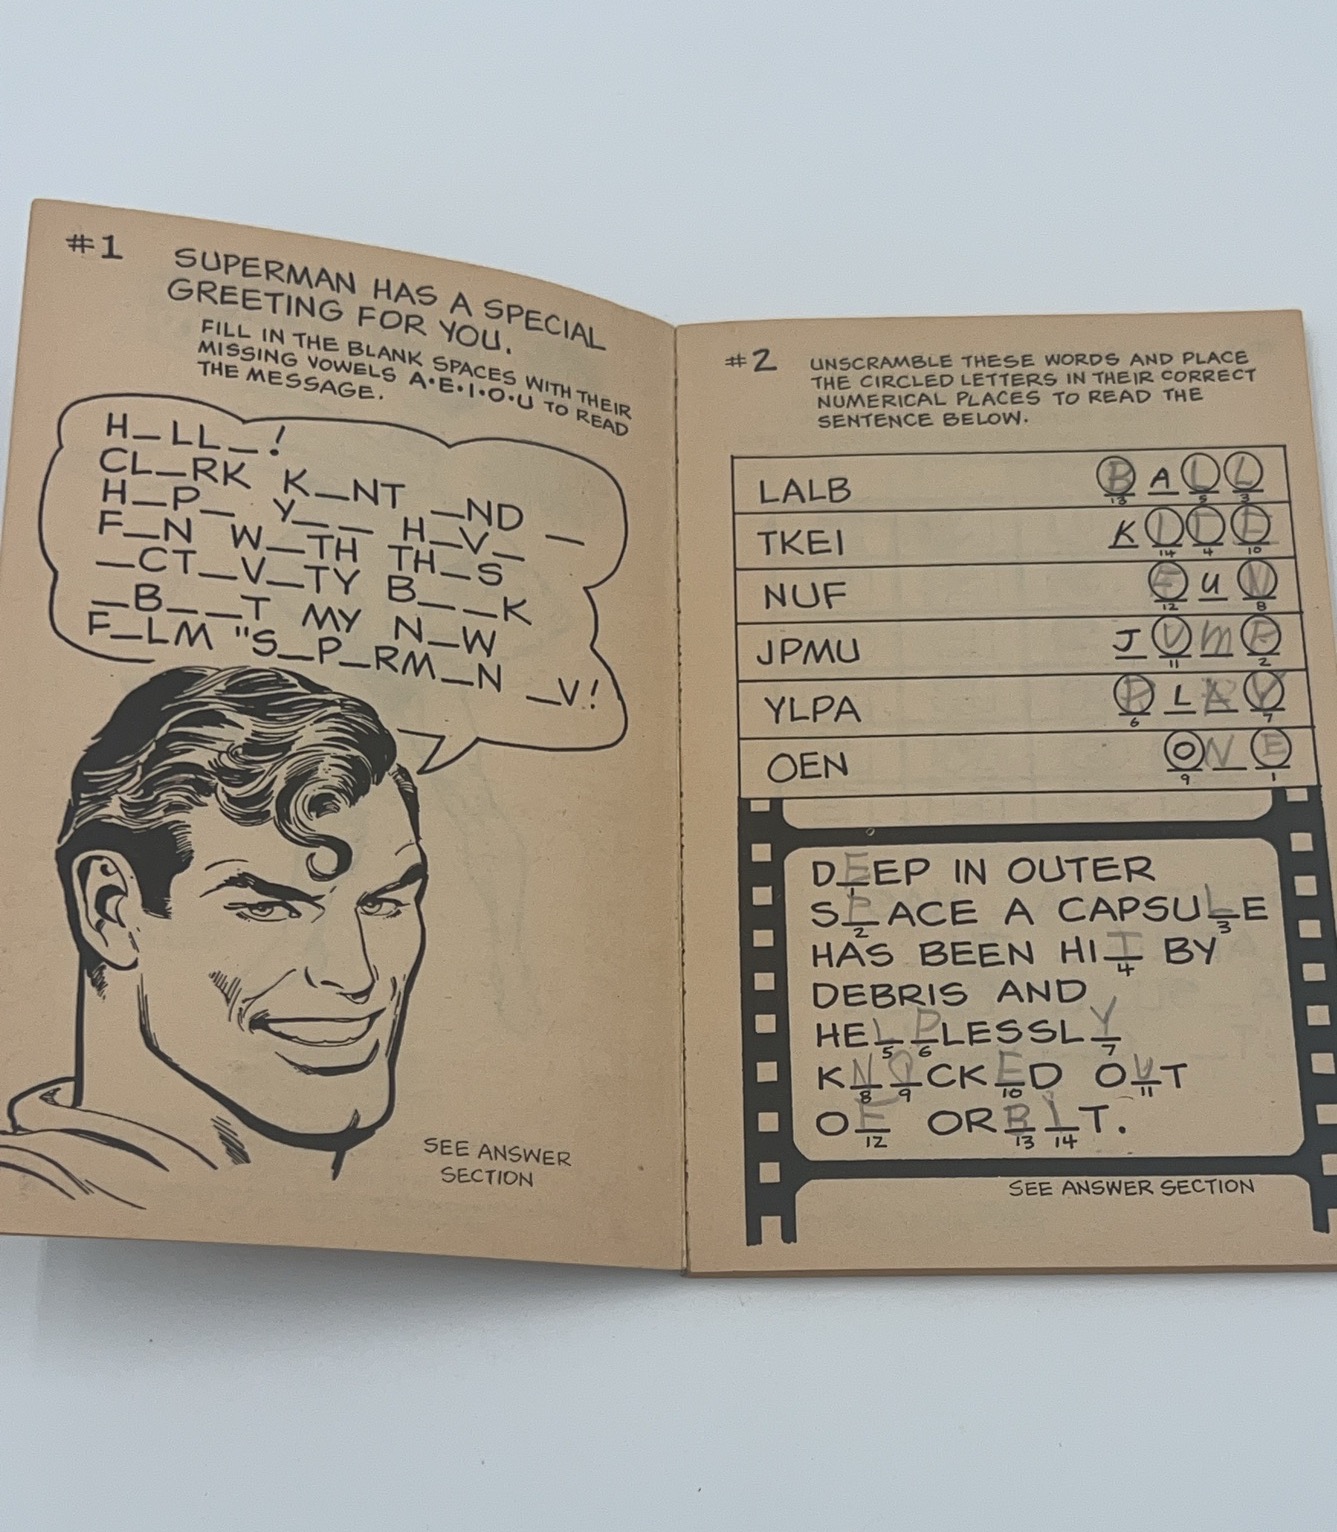 #1 SUPERMAN HAS A SPECIAL
GREETING FOR YOU.
FILL IN THE BLANK SPACES WITH THEIR
MISSING VOWELS A·E·I·O·U TO READ
THE MESSAGE.
H_LL_!
CL_RK K_NT _ND
H_P_ Y__ H_V_ _
F_N W_TH TH_S
_CT_V_TY B__K
_B__T MY N_W
F_LM "S_P_RM_N _V!
SEE ANSWER
SECTION
#2 UNSCRAMBLE THESE WORDS AND PLACE
THE CIRCLED LETTERS IN THEIR CORRECT
NUMERICAL PLACES TO READ THE
SENTENCE BELOW.
LALB BALL
13 5 3
TKEI KITE
14 4 10
NUF FUN
12 8
JPMU JUMP
11 2
YLPA PLAY
6 7
OEN ONE
9 1
DEEP IN OUTER
1
SPACE A CAPSULE
2 3
HAS BEEN HIT BY
4
DEBRIS AND
HELPLESSLY
5 6 7
KNOCKED OUT
8 9 10 11
OF ORBIT.
12 13 14
SEE ANSWER SECTION